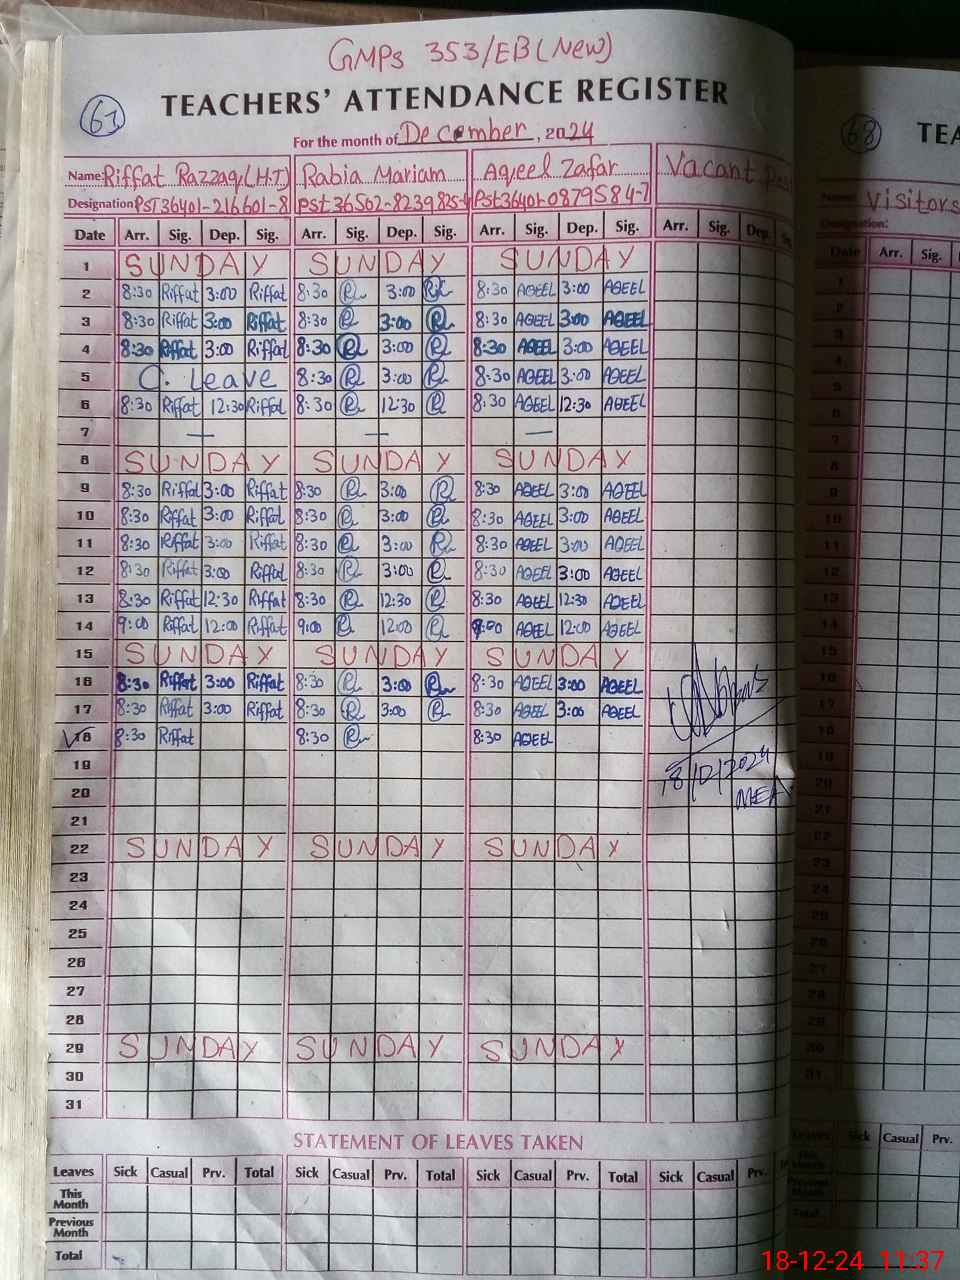 GMPs 353/EB(New)
61
TEACHERS' ATTENDANCE REGISTER
For the month of December, 2024
Name: Riffat Razzaq (H.T) Rabia Mariam Aqeel Zafar Vacant
Designation: PST 36401-216601-8 Pst 36502-8239825-4 Pst36401-0879584-7
Date Arr. Sig. Dep. Sig. Arr. Sig. Dep. Sig. Arr. Sig. Dep. Sig. Arr. Sig. Dep.
1 SUNDAY SUNDAY SUNDAY
2 8:30 Riffat 3:00 Riffat 8:30 3:00 8:30 AQEEL 3:00 AQEEL
3 8:30 Riffat 3:00 Riffat 8:30 3:00 8:30 AQEEL 3:00 AQEEL
4 8:30 Riffat 3:00 Riffat 8:30 3:00 8:30 AQEEL 3:00 AQEEL
5 C. Leave 8:30 3:00 8:30 AQEEL 3:00 AQEEL
6 8:30 Riffat 12:30 Riffat 8:30 12:30 8:30 AQEEL 12:30 AQEEL
7 — — —
8 SUNDAY SUNDAY SUNDAY
9 8:30 Riffat 3:00 Riffat 8:30 3:00 8:30 AQEEL 3:00 AQEEL
10 8:30 Riffat 3:00 Riffat 8:30 3:00 8:30 AQEEL 3:00 AQEEL
11 8:30 Riffat 3:00 Riffat 8:30 3:00 8:30 AQEEL 3:00 AQEEL
12 8:30 Riffat 3:00 Riffat 8:30 3:00 8:30 AQEEL 3:00 AQEEL
13 8:30 Riffat 12:30 Riffat 8:30 12:30 8:30 AQEEL 12:30 AQEEL
14 9:00 Riffat 12:00 Riffat 9:00 12:00 9:00 AQEEL 12:00 AQEEL
15 SUNDAY SUNDAY SUNDAY
16 8:30 Riffat 3:00 Riffat 8:30 3:00 8:30 AQEEL 3:00 AQEEL
17 8:30 Riffat 3:00 Riffat 8:30 3:00 8:30 AQEEL 3:00 AQEEL
18 8:30 Riffat 8:30 8:30 AQEEL
19
18/12/2024
20
MEA
21
22 SUNDAY SUNDAY SUNDAY
23
24
25
26
27
28
29 SUNDAY SUNDAY SUNDAY
30
31
STATEMENT OF LEAVES TAKEN
Leaves Sick Casual Prv. Total Sick Casual Prv. Total Sick Casual Prv. Total Sick Casual Prv.
This Month
Previous Month
Total
68
TEA
Visitors
Date Arr. Sig.
Sick Casual Prv.
18-12-24 11:37